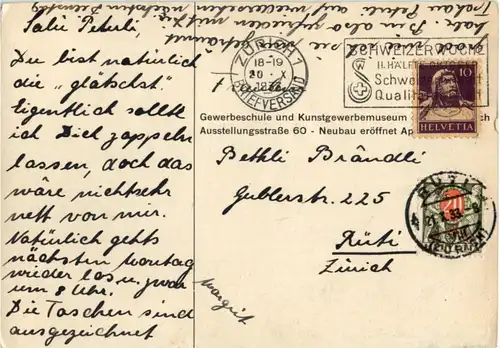 Salü Peterli.
Du bist natürlich
die "glätschst".
Eigentlich sollte
ich Dich zappeln
lassen, doch das
wäre nicht sehr
nett von mir.
Natürlich gehts
nächsten Montag
wieder los u. zwar
um 8 Uhr.
Die Taschen sind
ausgezeichnet
Margrit
ZÜRICH 1
18-19
20. X
BRIEFVERSAND
SCHWEIZERWOCHE
II. HÄLFTE OKTOBER
Schweizer
Qualität
10
HELVETIA
Gewerbeschule und Kunstgewerbemuseum
Ausstellungsstraße 60 - Neubau eröffnet Ap
Bethli Brändli
Gublerstr. 225
Rüti
Zürich
RÜTI
20
(ZÜRICH)